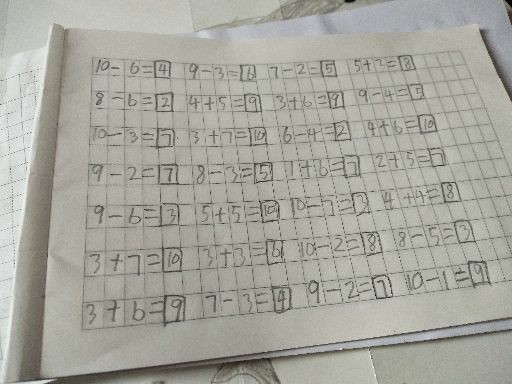 10-6=4 9-3=6 7-2=5 5+3=8
8-6=2 4+5=9 3+6=9 9-4=5
10-3=7 3+7=10 6-4=2 4+6=10
9-2=7 8-3=5 1+6=7 2+5=7
9-6=3 5+5=10 10-7=3 4+4=8
3+7=10 3+3=6 10-2=8 8-5=3
3+6=9 7-3=4 9-2=7 10-1=9